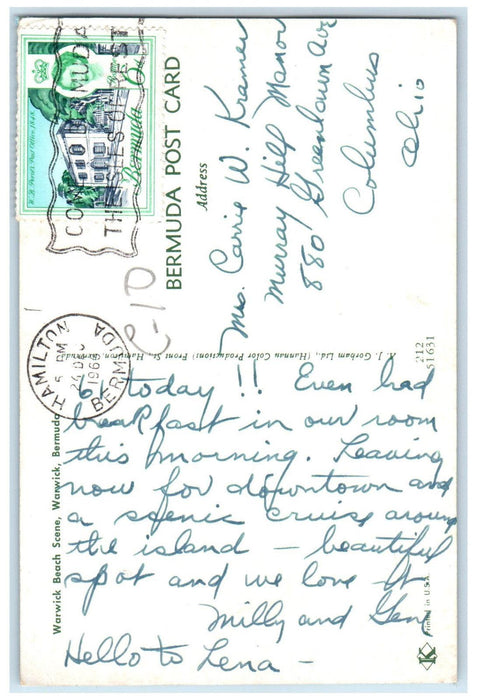 COME TO BERMUDA
THE ISLES OF REST
W. B. Perot's Post Office 1848
Bermuda
BERMUDA POST CARD
Address
Mrs. Carrie W. Kramer
Murray Hill Manor
880 Greenlawn Ave
Columbus
Ohio
HAMILTON
PM
24
196
BERMUDA
C-10
212
51631
A. J. Gorham Ltd., (Hannau Color Productions) Front St., Hamilton, Bermuda
Warwick Beach Scene, Warwick, Bermuda
today!! Even had
breakfast in our room
this morning. Leaving
now for downtown and
a scenic cruise around
the island — beautiful
spot and we love it
Milly and Gene
Hello to Lena —
Printed in U.S.A.
K